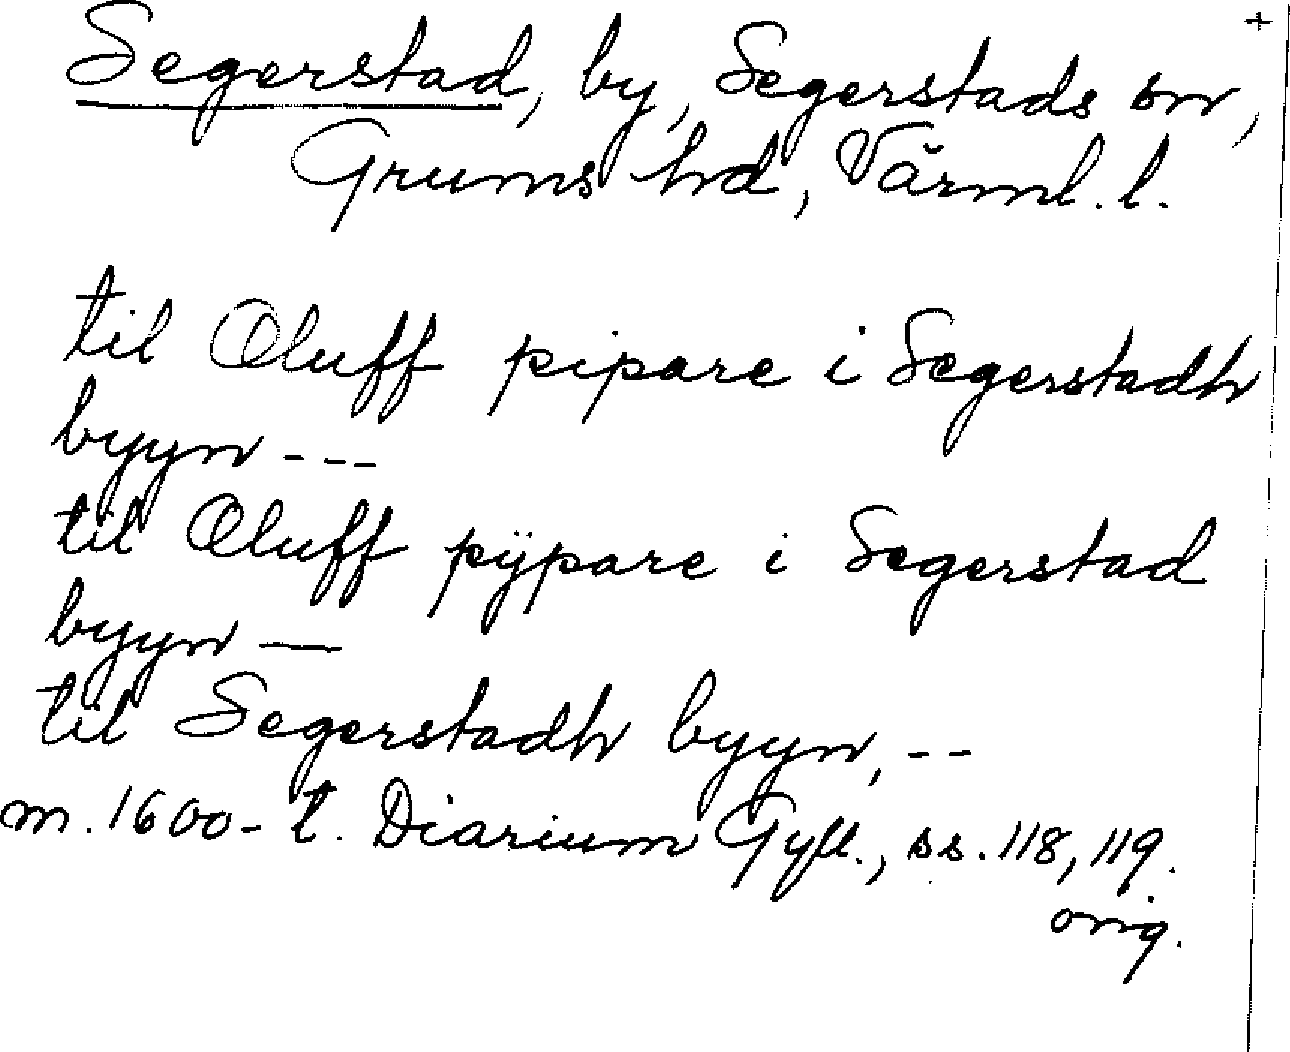 +
Segerstad, by, Segerstads sn,
Grums hd, Värml. l.
til Oluff pipare i Segerstadh
byyn ---
til Oluff pÿpare i Segerstad
byyn —
til Segerstadh byyn, --
m. 1600-t. Diarium Gyll., ss. 118, 119.
orig.